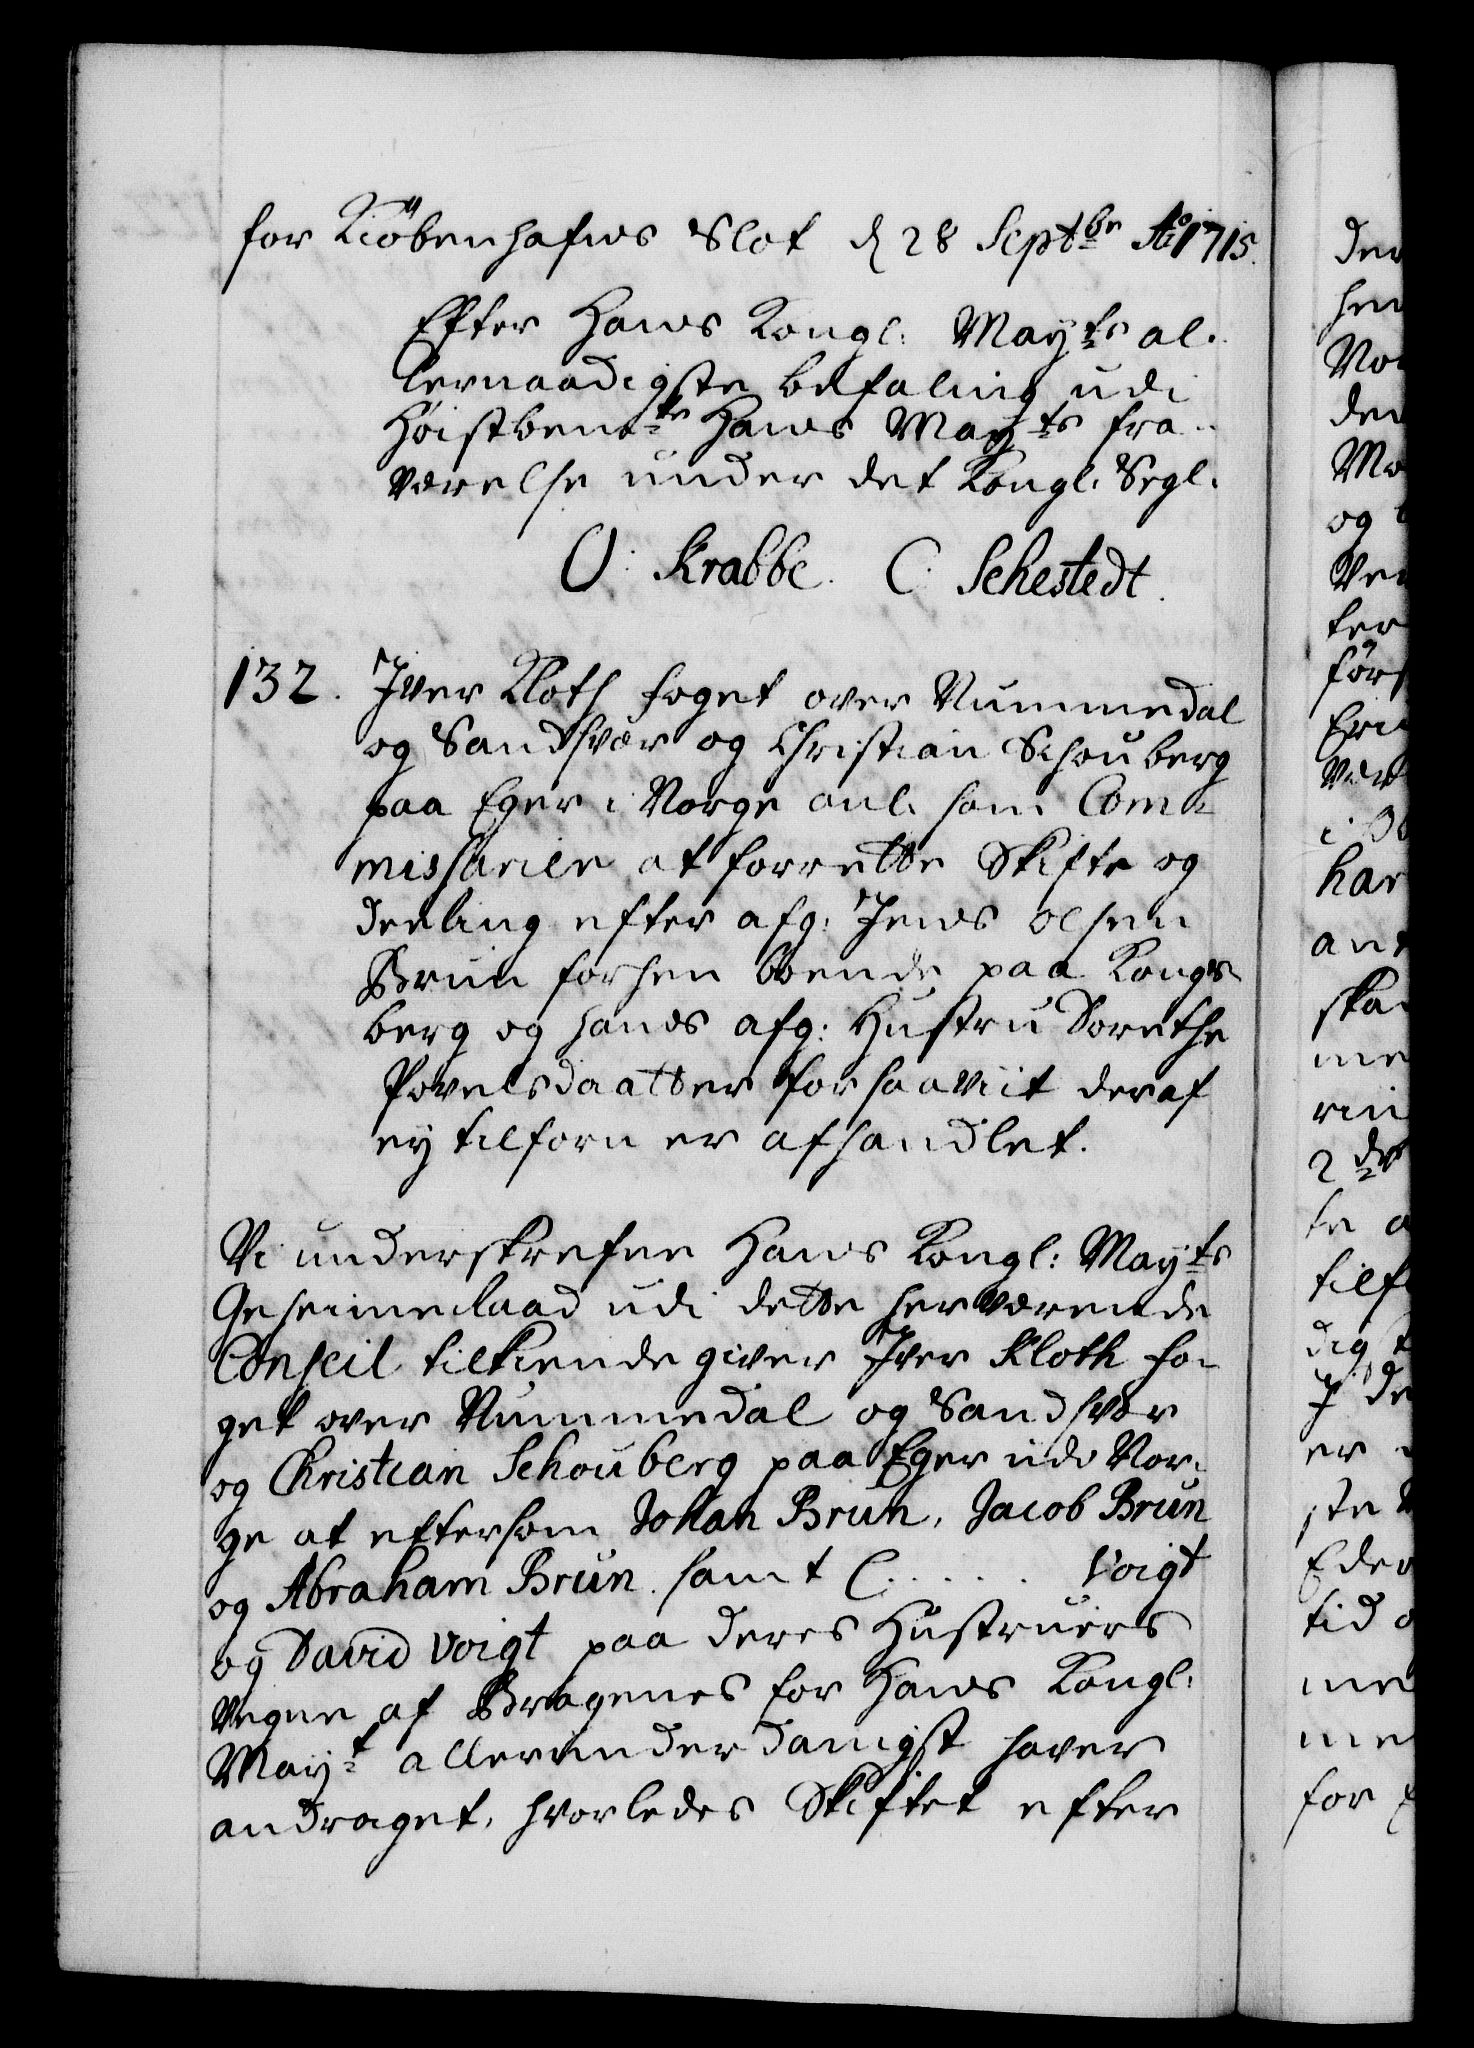 for Kiöbenhafns Slot d 28 Septbr Ao 1715.
Efter Hans Kongl: Mayts al-
lernaadigste befaling udi
Høistbemte Hans Mayts fra-
værelse under det Kongl. Segl.
O. Krabbe. C. Sehestedt.
132. Jver Kloth foget over Nummedal
og Sandsvær og Christian Schouberg
paa Eger i Norge anl. som Com-
missarier at forrette Skifte og
deeling efter afg: Jens Olsen
Brun forhen boende paa Kongs-
berg og hans afg: Hustru Dorethe
Povelsdaatter forsaaviit deraf
ey tilforn er afhandlet.
Vi underskrefne Hans Kongl: Mayts
Geheimeraad udi dette herværende
Conseil tilkiende giver Jver Kloth fo-
get over Nummedal og Sandsvær
og Christian Schouberg paa Eger udi Nor-
ge at eftersom Johan Brun, Jacob Brun
og Abraham Brun. samt C. . . . . . Voigt
og David Voigt paa deres Hustruers
Vegne af Bragenes for Hans Kongl:
Mayt allerunderdanigst haver
andraget, hvorledes Skiftet efter
der
hen
den
og
ter
har
ant
ska
me
rin
2 de
te
tilf
dig
J de
er
ste
Eder
tid
me
me
for